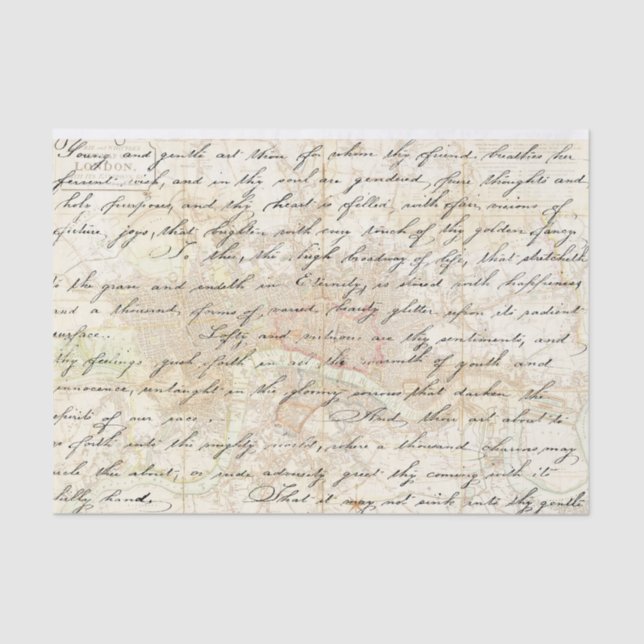 LONDON.
Young and gentle art thou for whom thy friend breathes her
fervent wish, and in thy soul are gendered, pure thoughts and
holy purposes, and thy heart is filled with fair visions of
future joys, that brighten with every touch of thy golden fancy
To thee, the high broadway of life, that stretcheth
to the grave and endeth in Eternity, is stored with happiness
and a thousand forms of varied beauty glitter upon its radient
surface. Lofty and virtuous are thy sentiments, and
thy feelings gush forth in all the warmth of youth and
innocence, untaught in the gloomy sorrows that darken the
spirits of our race. And thou art about to
go forth into the mighty world, where a thousand charms may
circle thee about, or rude adversity greet thy coming with its
chilly hand. That it may not sink into thy gentle